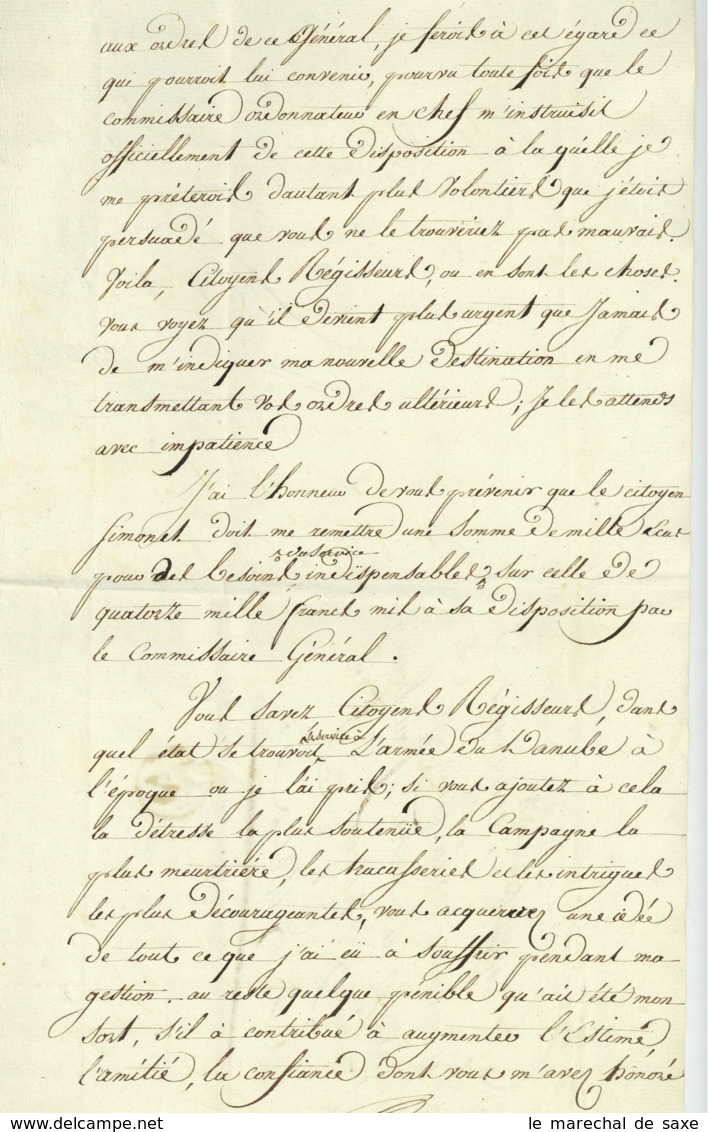 aux ordres de ce Général, je ferois à cet égard ce
qui pourroit lui convenir, pourvu toute fois que le
commissaire ordonnateur en chef m'instruisit
officiellement de cette disposition à la quélle je
me préterois dautant plus volontiers que j'étois
persuadé que vous ne le trouveriez pas mauvais.
Voila, Citoyens Régisseurs, ou en sont les choses.
vous voyez qu'il devient plus urgent que Jamais
de m'indiquer ma nouvelle destination en me
transmettant vos ordres ultérieurs; Je les attends
avec impatience
J'ai l'honneur de vous prévenir que le citoyen
Simonet doit me remettre une somme de mille écus
du service
pour des besoins indispensables, sur celle de
quatorze mille francs mis à sa disposition par
le Commissaire Général.
Vous savez Citoyens Régisseurs, dans
le service à
quel état se trouvoit L'armée du Danube à
l'époque ou je l'ai pris; si vous ajoutez à cela
la détresse la plus soutenüe, la Campagne la
plus meurtriére, les tracasseries et les intrigues
les plus décourageantes, vous acquerrez une idée
de tout ce que j'ai eü à souffrir pendant ma
gestion. au reste quelque pénible qu'ait été mon
sort, s'il à contribué à augmenter l'Estime
l'amitié, la confiance dont vous m'avez honoré
le marechal de saxe